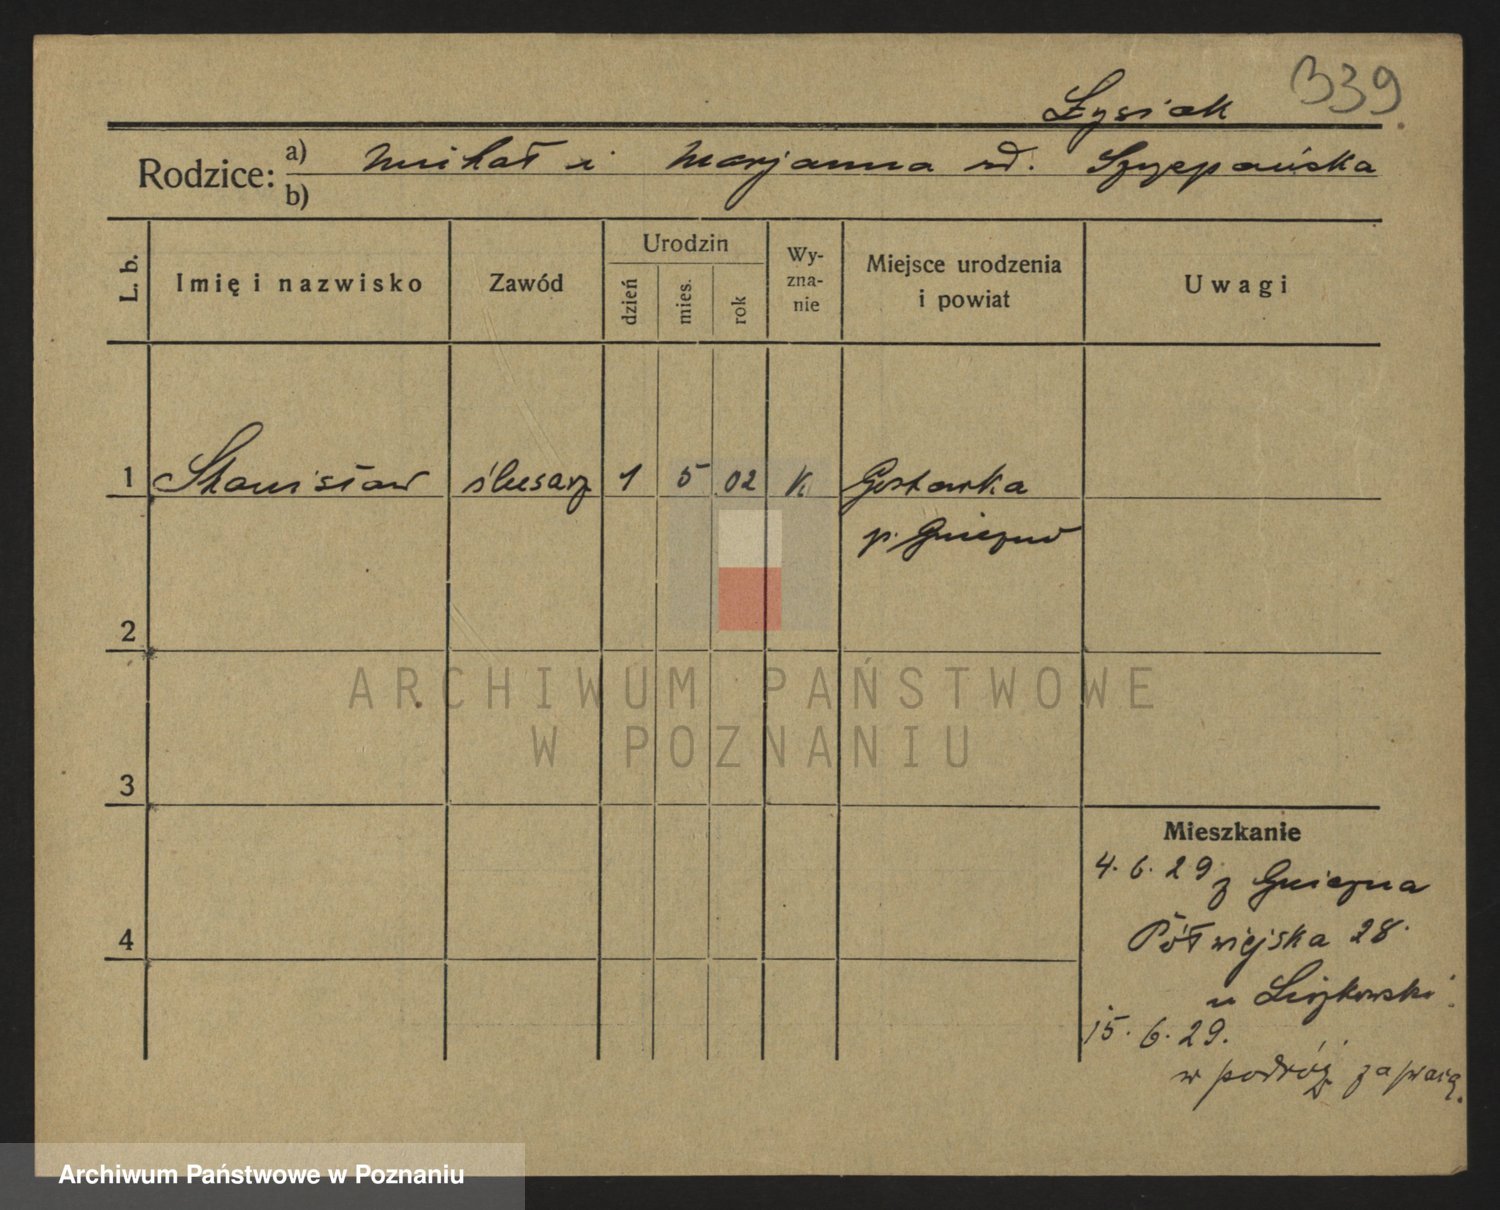 339
Łysiak
Rodzice: a) Michał i Marjanna ud. Szczepańska
b)
L. b. Imię i nazwisko Zawód Urodzin dzień mies. rok Wy-zna-nie Miejsce urodzenia i powiat Uwagi
1 Stanisław ślusarz 1 5 02 K
p. Gniezno
2
ARCHIWUM PAŃSTWOWE
W POZNANIU
3
Mieszkanie
4. 6. 29 z Gniezna
4
Półwiejska 28.
u
15. 6. 29.
w podróż za pracą.
Archiwum Państwowe w Poznaniu